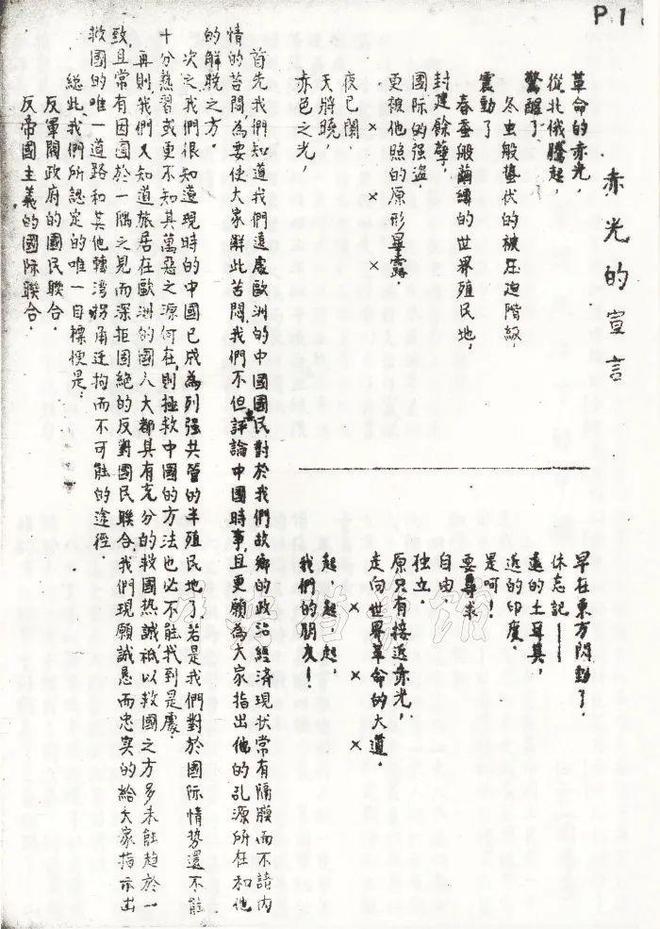 P1.
赤光的宣言
革命的赤光，
從北俄騰起，
驚醒了
冬虫般蟄伏的被压迫階級，
震動了
春蚕般繭縛的世界殖民地，
封建餘孽，
國际的强盗，
更被他照的原形畢露．
× × ×
夜已闌
天將曉，
赤色之光，
早在東方閃動了．
休忘記——
遠的土耳其，
近的印度．
是呵！
要尋求
自由．
独立．
原只有接近赤光，
走向世界革命的大道．
× × ×
起，起，起，
我們的朋友！
首先我們知道我們遠處歐洲的中國國民對於我們故鄉的政治經済現状常有隔膜而不諳内
情的苦悶，為要使大家解此苦悶，我們不但評論中國時事，且更願為大家指出他的乱源所在和他
的解脱之方．
次之我們很知道現時的中國已成為列强共管的半殖民地了，若是我們對於國际情势還不能
十分熟習或更不知其萬惡之源何在，則拯救中國的方法也必不能找到是處．
再則我們又知道旅居在歐洲的國人大都具有充分的救國热誠，祇以救國之方多未能趋於一
致，且常有因囿於一隅之見而深拒固絶的反對國民聯合，我們現願誠恳而忠实的給大家指示出
救國的唯一道路和其他轉湾拐角迂拘而不可能的途徑．
総此，我們所認定的唯一目標便是：
反軍閥政府的國民聯合．
反帝國主義的國际聯合．